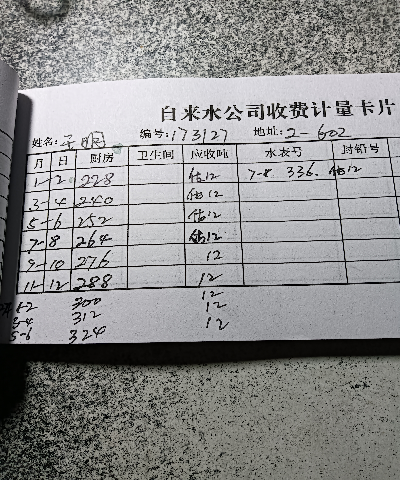 自来水公司收费计量卡片
姓名: 王明 编号: 173127 地址: 2-602
月 日 厨房 卫生间 应收吨 水表号 封铅号
1-2 228 估12 7-8 336. 估12
3-4 240 估12
5-6 252 估12
7-8 264 估12
9-10 276 12
11-12 288 12
1-2 300 12
3-4 312 12
5-6 324 12